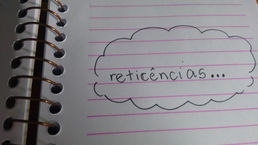 reticências...